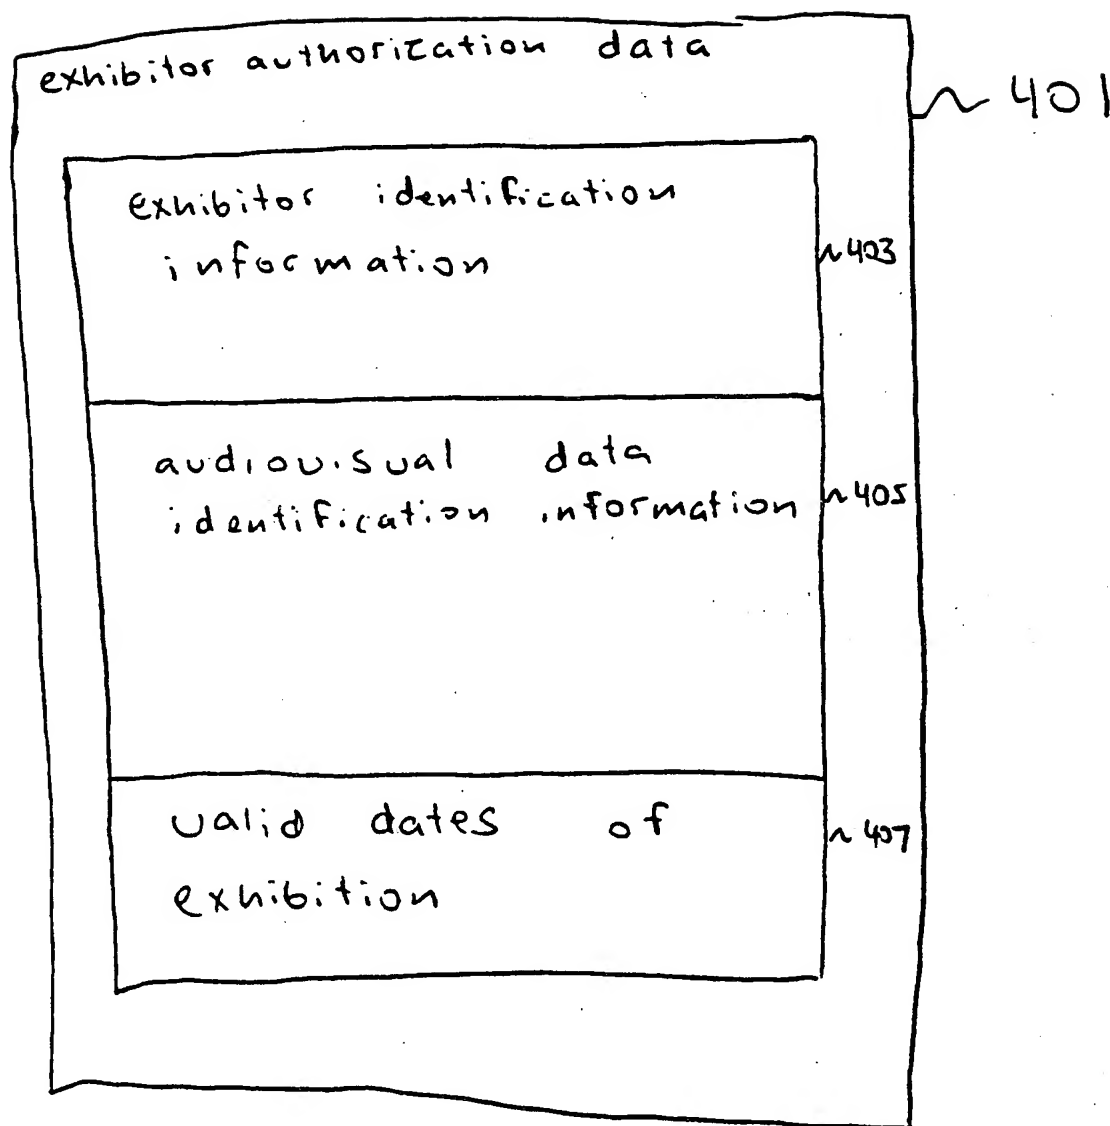 exhibitor authorization data
~ 401
exhibitor identification
information
~403
audiovisual data
identification information
~405
valid dates of
exhibition
~ 407